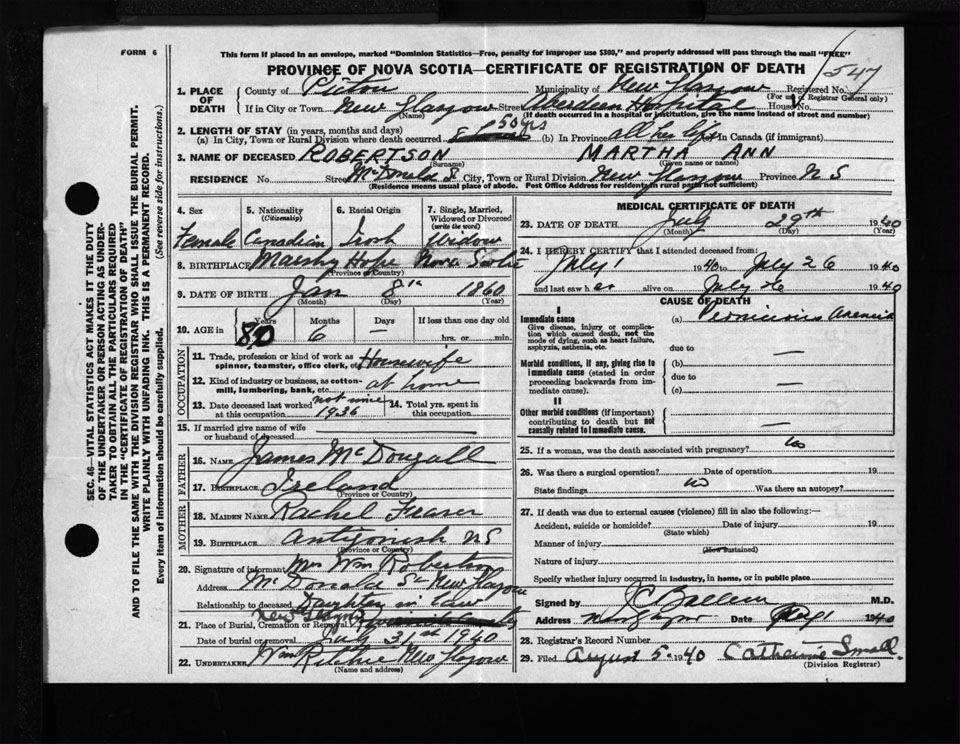 FORM 6
This form if placed in an envelope, marked "Dominion Statistics—Free, penalty for improper use $300," and properly addressed will pass through the mail "FREE"
PROVINCE OF NOVA SCOTIA—CERTIFICATE OF REGISTRATION OF DEATH
547
1. PLACE OF DEATH
County of Pictou Municipality of New Glasgow Registered No.
(For use of Registrar General only)
If in City or Town New Glasgow Street Aberdeen Hospital House
(Name) (If death occurred in a hospital or institution, give the name instead of street and number)
2. LENGTH OF STAY (in years, months and days)
(a) In City, Town or Rural Division where death occurred 50 yrs (b) In Province all her life In Canada (if immigrant)
3. NAME OF DECEASED ROBERTSON MARTHA ANN
(Surname) (Given name or names)
RESIDENCE No. Street McDonald St City, Town or Rural Division New Glasgow Province NS
(Residence means usual place of abode. Post Office Address for residents in rural parts not sufficient)
SEC. 46—VITAL STATISTICS ACT MAKES IT THE DUTY
OF THE UNDERTAKER OR PERSON ACTING AS UNDER-
TAKER TO OBTAIN ALL THE PARTICULARS REQUIRED
IN THE "CERTIFICATE OF REGISTRATION OF DEATH"
AND TO FILE THE SAME WITH THE DIVISION REGISTRAR WHO SHALL ISSUE THE BURIAL PERMIT.
WRITE PLAINLY WITH UNFADING INK. THIS IS A PERMANENT RECORD.
Every item of information should be carefully supplied. (See reverse side for instructions.)
4. Sex 5. Nationality (Citizenship) 6. Racial Origin 7. Single, Married, Widowed or Divorced (write the word)
Female Canadian Irish Widow
8. BIRTHPLACE Marshy Hope Nova Scotia
(Province or Country)
9. DATE OF BIRTH Jan 8th 1860
(Month) (Day) (Year)
10. AGE in Years Months Days If less than one day old
80 6 — hrs. or min.
OCCUPATION
11. Trade, profession or kind of work as spinner, teamster, office clerk, etc. Housewife
12. Kind of industry or business, as cotton-mill, lumbering, bank, etc. at home
13. Date deceased last worked at this occupation not since 1936 14. Total yrs. spent in this occupation
15. If married give name of wife or husband of deceased
FATHER
16. NAME James McDougall
17. BIRTHPLACE Ireland
(Province or Country)
MOTHER
18. MAIDEN NAME Rachel Fraser
19. BIRTHPLACE Antigonish NS
(Province or Country)
20. Signature of informant Mrs Wm Robertson
Address McDonald St New Glasgow
Relationship to deceased Daughter in law
21. Place of Burial, Cremation or Removal New Glasgow
Date of burial or removal July 31st 1940
22. UNDERTAKER Wm Ritchie New Glasgow
(Name and address)
MEDICAL CERTIFICATE OF DEATH
23. DATE OF DEATH July 29th 1940
(Month) (Day) (Year)
24. I HEREBY CERTIFY that I attended deceased from:
July 1 1940 to July 26 1940
and last saw her alive on July 26 1940
CAUSE OF DEATH
I
Immediate cause (a) Pernicious Anemia
Give disease, injury or complication which caused death, not the mode of dying, such as heart failure, asphyxia, asthenia, etc.
due to —
Morbid conditions, if any, giving rise to immediate cause (stated in order proceeding backwards from immediate cause).
(b)
due to —
(c)
II
Other morbid conditions (if important) contributing to death but not causally related to immediate cause. —
25. If a woman, was the death associated with pregnancy? No
26. Was there a surgical operation? Date of operation 19
State findings no Was there an autopsy?
27. If death was due to external causes (violence) fill in also the following:—
Accident, suicide or homicide? Date of injury 19
(State which)
Manner of injury
(How sustained)
Nature of injury
Specify whether injury occurred in industry, in home, or in public place
Signed by M.D.
Address New Glasgow Date 1940
28. Registrar's Record Number
29. Filed August 5th 1940 Catherine Small
(Division Registrar)